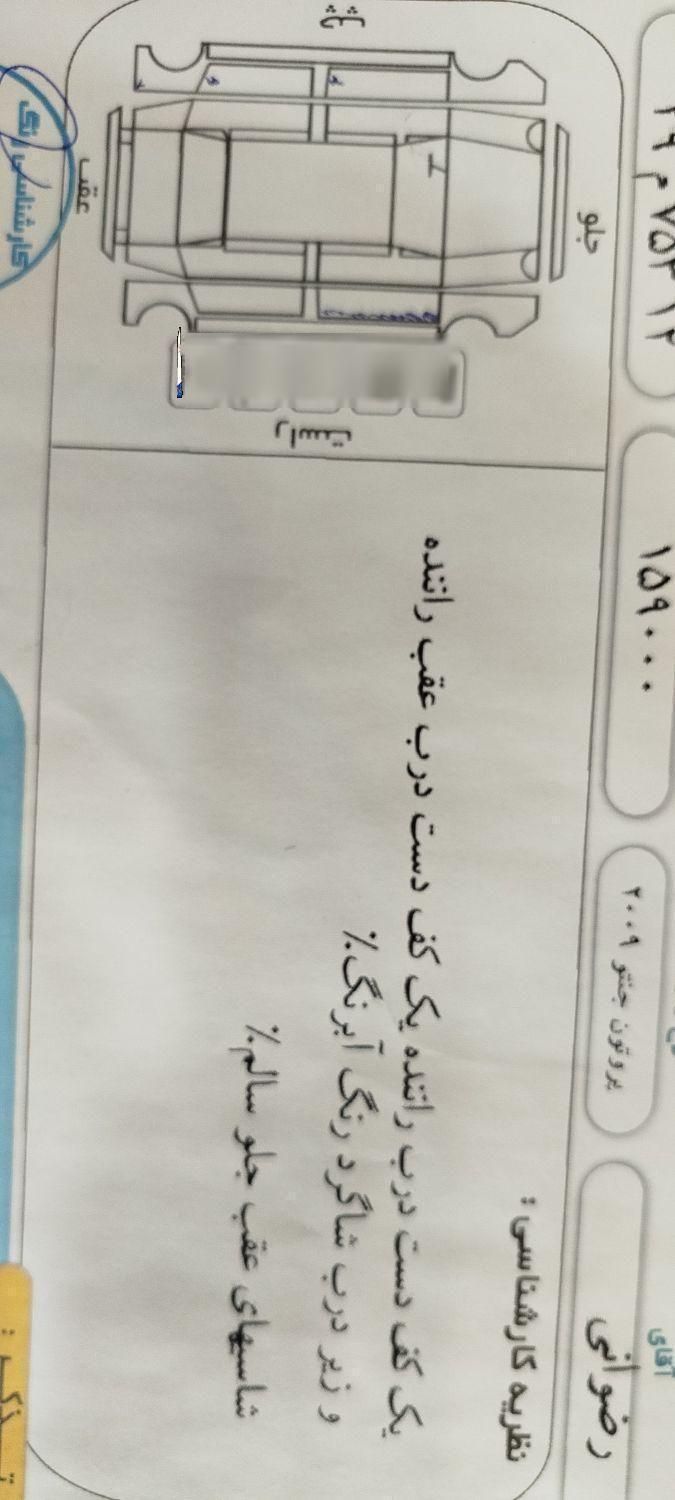 آقای
رضوانی
پروتون جنتو ۲۰۰۹
۱۵۹۰۰۰
نظریه کارشناسی :
یک کف دست درب راننده یک کف دست درب عقب راننده
و زیر درب شاگرد رنگ آبرنگ.%
شاسیهای عقب جلو سالم.%
چپ
جلو
عقب
راست
کارشناسی رنگ